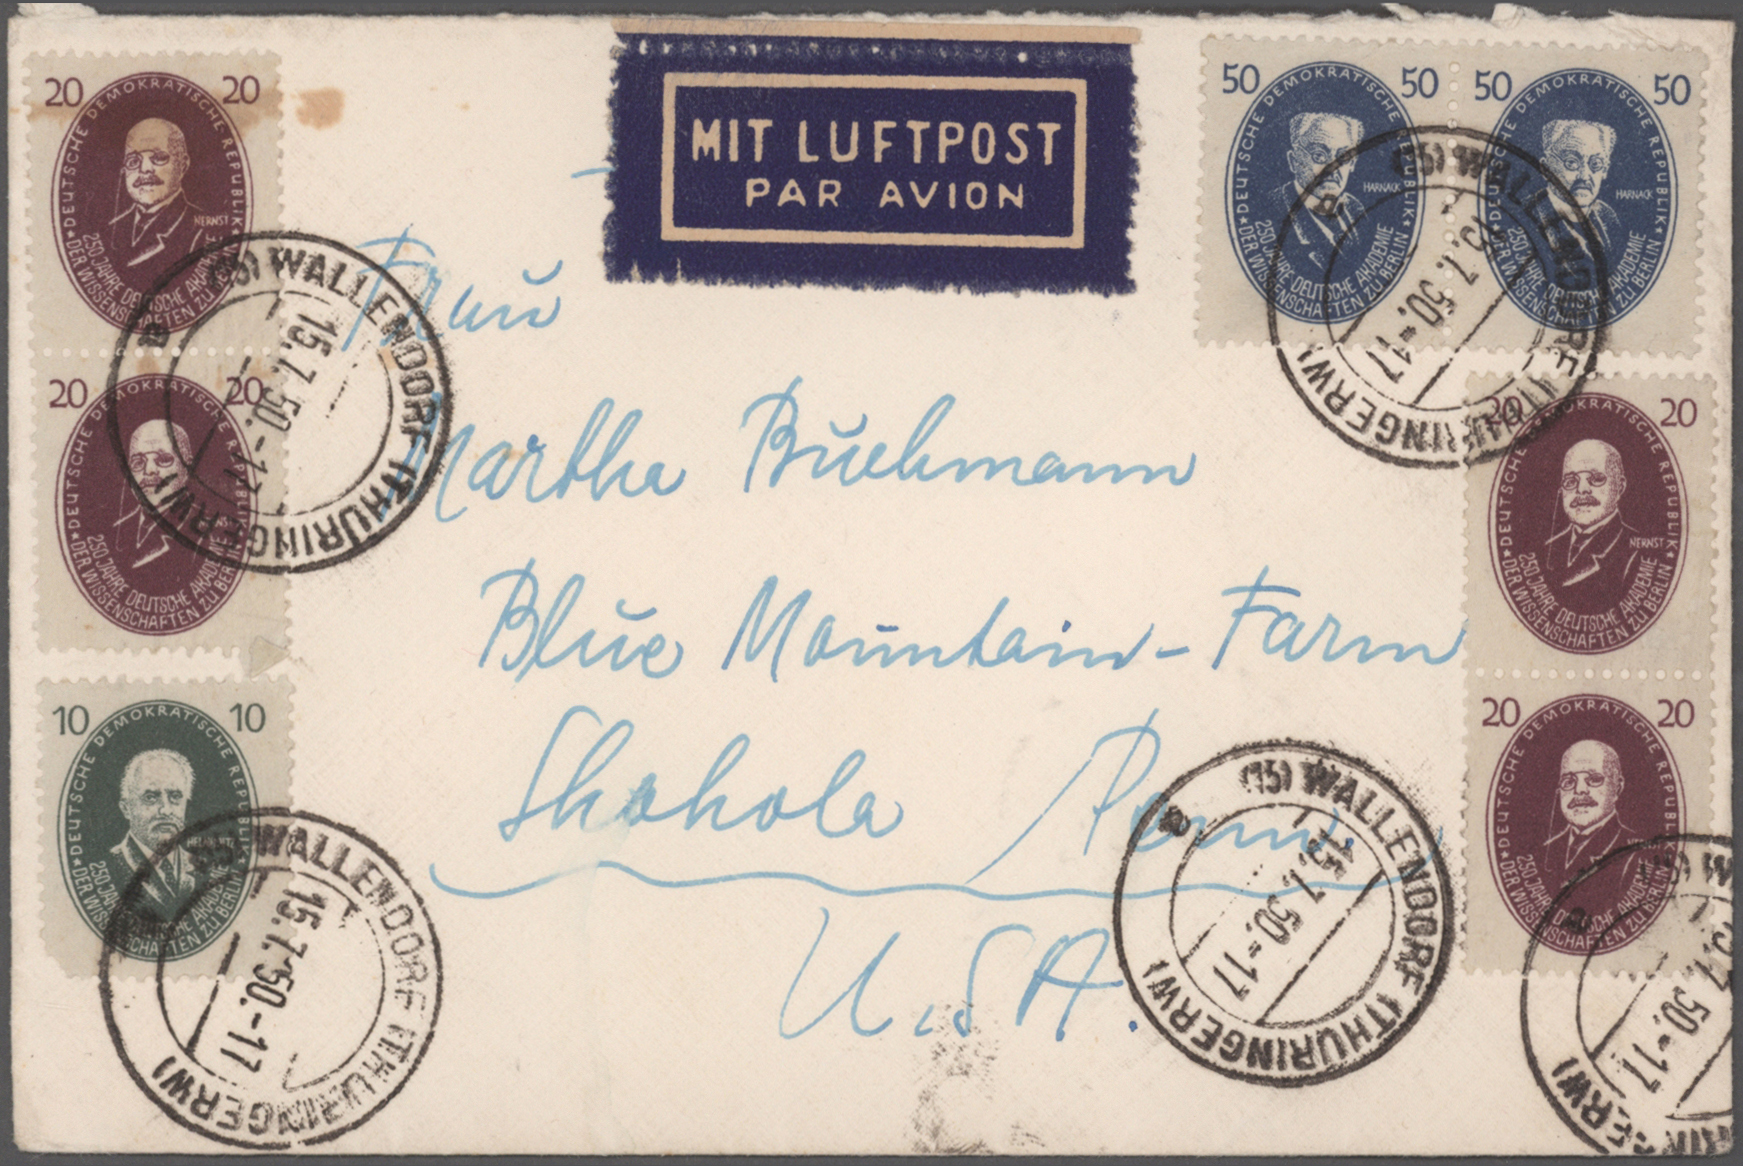 20 20
DEUTSCHE DEMOKRATISCHE REPUBLIK
NERNST
250 JAHRE DEUTSCHE AKADEMIE
DER WISSENSCHAFTEN ZU BERLIN
20 20
DEUTSCHE DEMOKRATISCHE REPUBLIK
NERNST
250 JAHRE DEUTSCHE AKADEMIE
DER WISSENSCHAFTEN ZU BERLIN
(15) WALLENDORF (THÜRINGERW)
a
15.7.50.-17
10 10
DEUTSCHE DEMOKRATISCHE REPUBLIK
250 JAHRE DEUTSCHE AKADEMIE
DER WISSENSCHAFTEN ZU BERLIN
(15) WALLENDORF (THÜRINGERW)
15.7.50.-17
MIT LUFTPOST
PAR AVION
50 50
DEUTSCHE DEMOKRATISCHE REPUBLIK
HARNACK
250 JAHRE DEUTSCHE AKADEMIE
DER WISSENSCHAFTEN ZU BERLIN
50 50
DEUTSCHE DEMOKRATISCHE REPUBLIK
HARNACK
250 JAHRE DEUTSCHE AKADEMIE
DER WISSENSCHAFTEN ZU BERLIN
(15) WALLENDORF (THÜRINGERW)
a
15.7.50.-17
Frau
Martha Buchmann
Blue Mountain-Farm
Shohola Penn.
U.S.A.
20 20
DEUTSCHE DEMOKRATISCHE REPUBLIK
NERNST
250 JAHRE DEUTSCHE AKADEMIE
DER WISSENSCHAFTEN ZU BERLIN
20 20
DEUTSCHE DEMOKRATISCHE REPUBLIK
NERNST
250 JAHRE DEUTSCHE AKADEMIE
DER WISSENSCHAFTEN ZU BERLIN
(15) WALLENDORF (THÜRINGERW)
a
15.7.50.-17
(15) W
a
15.7.50.-17
RINGERW)